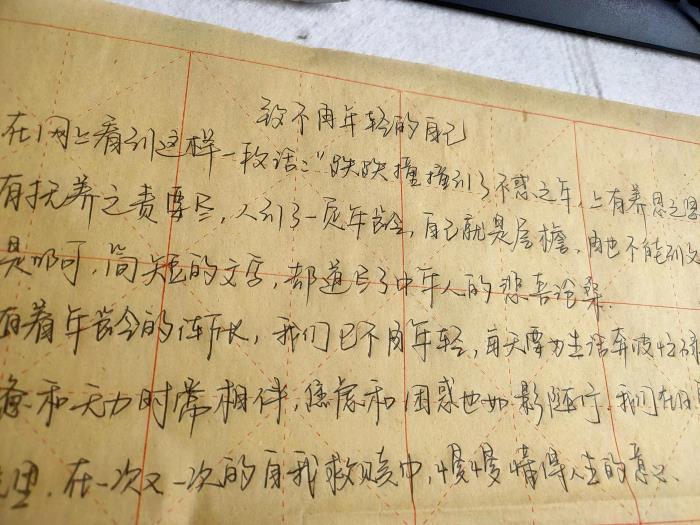 致不再年轻的自己
在网上看到这样一段话："跌跌撞撞到了不惑之年，上有养恩之
有抚养之责要尽，人到了一定年龄，自己就是屋檐，再也不能到
是啊，简短的文字，都道尽了中年人的悲喜沧桑
有着年龄的增长，我们已不再年轻，每天要为生活奔波忙
惫和无力时常相伴，焦虑和困惑也如影随行，我们在日
里，在一次又一次的自我救赎中，慢慢懂得人生的意义.